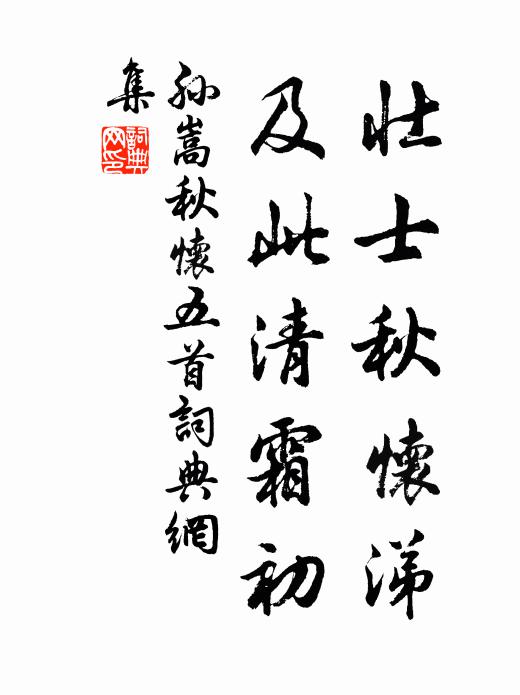 壯士秋懷涕
及此清霜初
孫嵩秋懷五首詞典網
集
詞典
网印